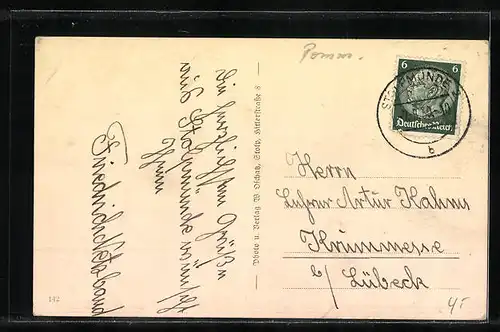 Pomm.
6 6
Deutsches Reich
STOLPMÜNDE
b
Die herzlichsten Grüßen
aus Stolpmünde wünscht
Ihnen
Friedrich
Photo u. Verlag W. Olschatz, Stolp, Hitlerstraße 8
Herrn
Lehrer Artur Kahns
Krummesse
b/ Lübeck
142
4.-